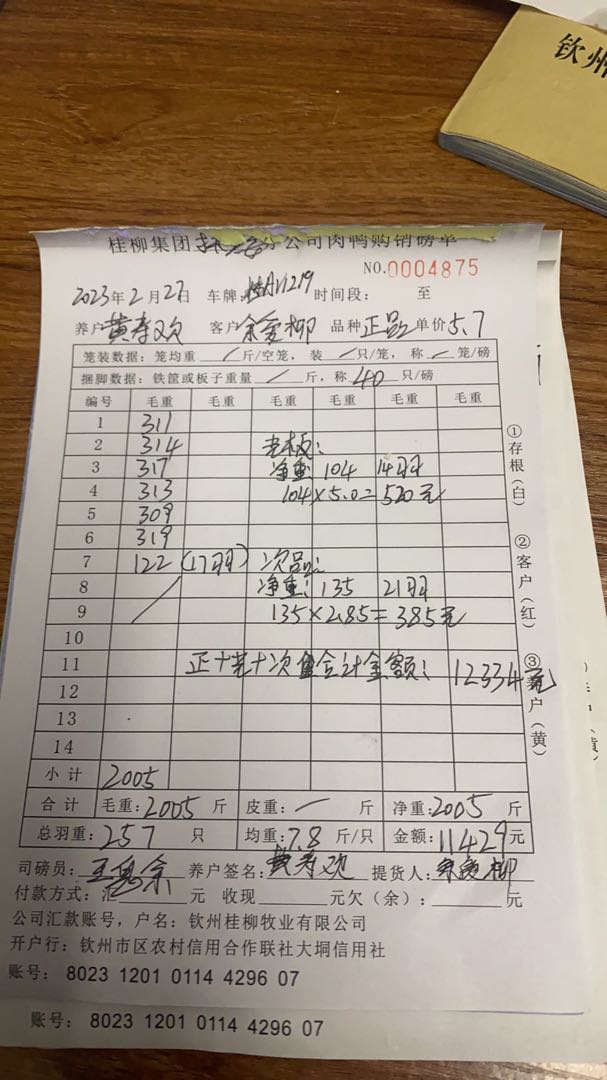 钦州
桂柳集团 分公司肉鸭购销磅单
NO.0004875
2023年2月27日 车牌 1219 时间段： 至
养户黄寿欢 客户余爱柳 品种正品 单价5.7
笼装数据：笼均重 / 斤/空笼，装 / 只/笼，称 / 笼/磅
捆脚数据：铁筐或板子重量 / 斤，称 40 只/磅
编号 毛重 毛重 毛重 毛重 毛重 毛重
1 311
2 314 老板：
3 317 净重 104 14羽
4 313 104×5.0=520元
5 309
6 319
7 122 (17羽) 次品：
8 净重：135 21羽
9 135×2.85=385元
10
11 正+老+次 合计金额：12334元
12
13
14
小计 2005
合计 毛重：2005 斤 皮重：/ 斤 净重：2005 斤
总羽重：257 只 均重：7.8 斤/只 金额：11429元
司磅员： 养户签名：黄寿欢 提货人：余爱柳
付款方式：汇 元 收现 元欠（余）： 元
公司汇款账号，户名：钦州桂柳牧业有限公司
开户行：钦州市区农村信用合作联社大垌信用社
账号：8023 1201 0114 4296 07
账号：8023 1201 0114 4296 07
①存根（白）
②客户（红）
③养户（黄）
黄）